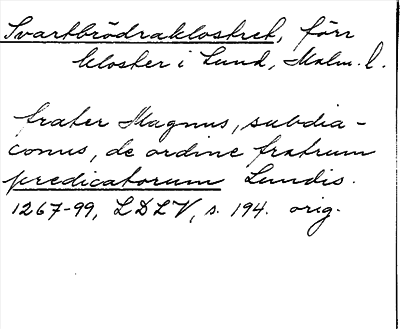 Svartbrödraklostret, förr
kloster i Lund, Malm. l.
frater Magnus, subdia-
conus, de ordine fratrum
predicatorum Lundis.
1267-99, LDLV, s. 194. orig.